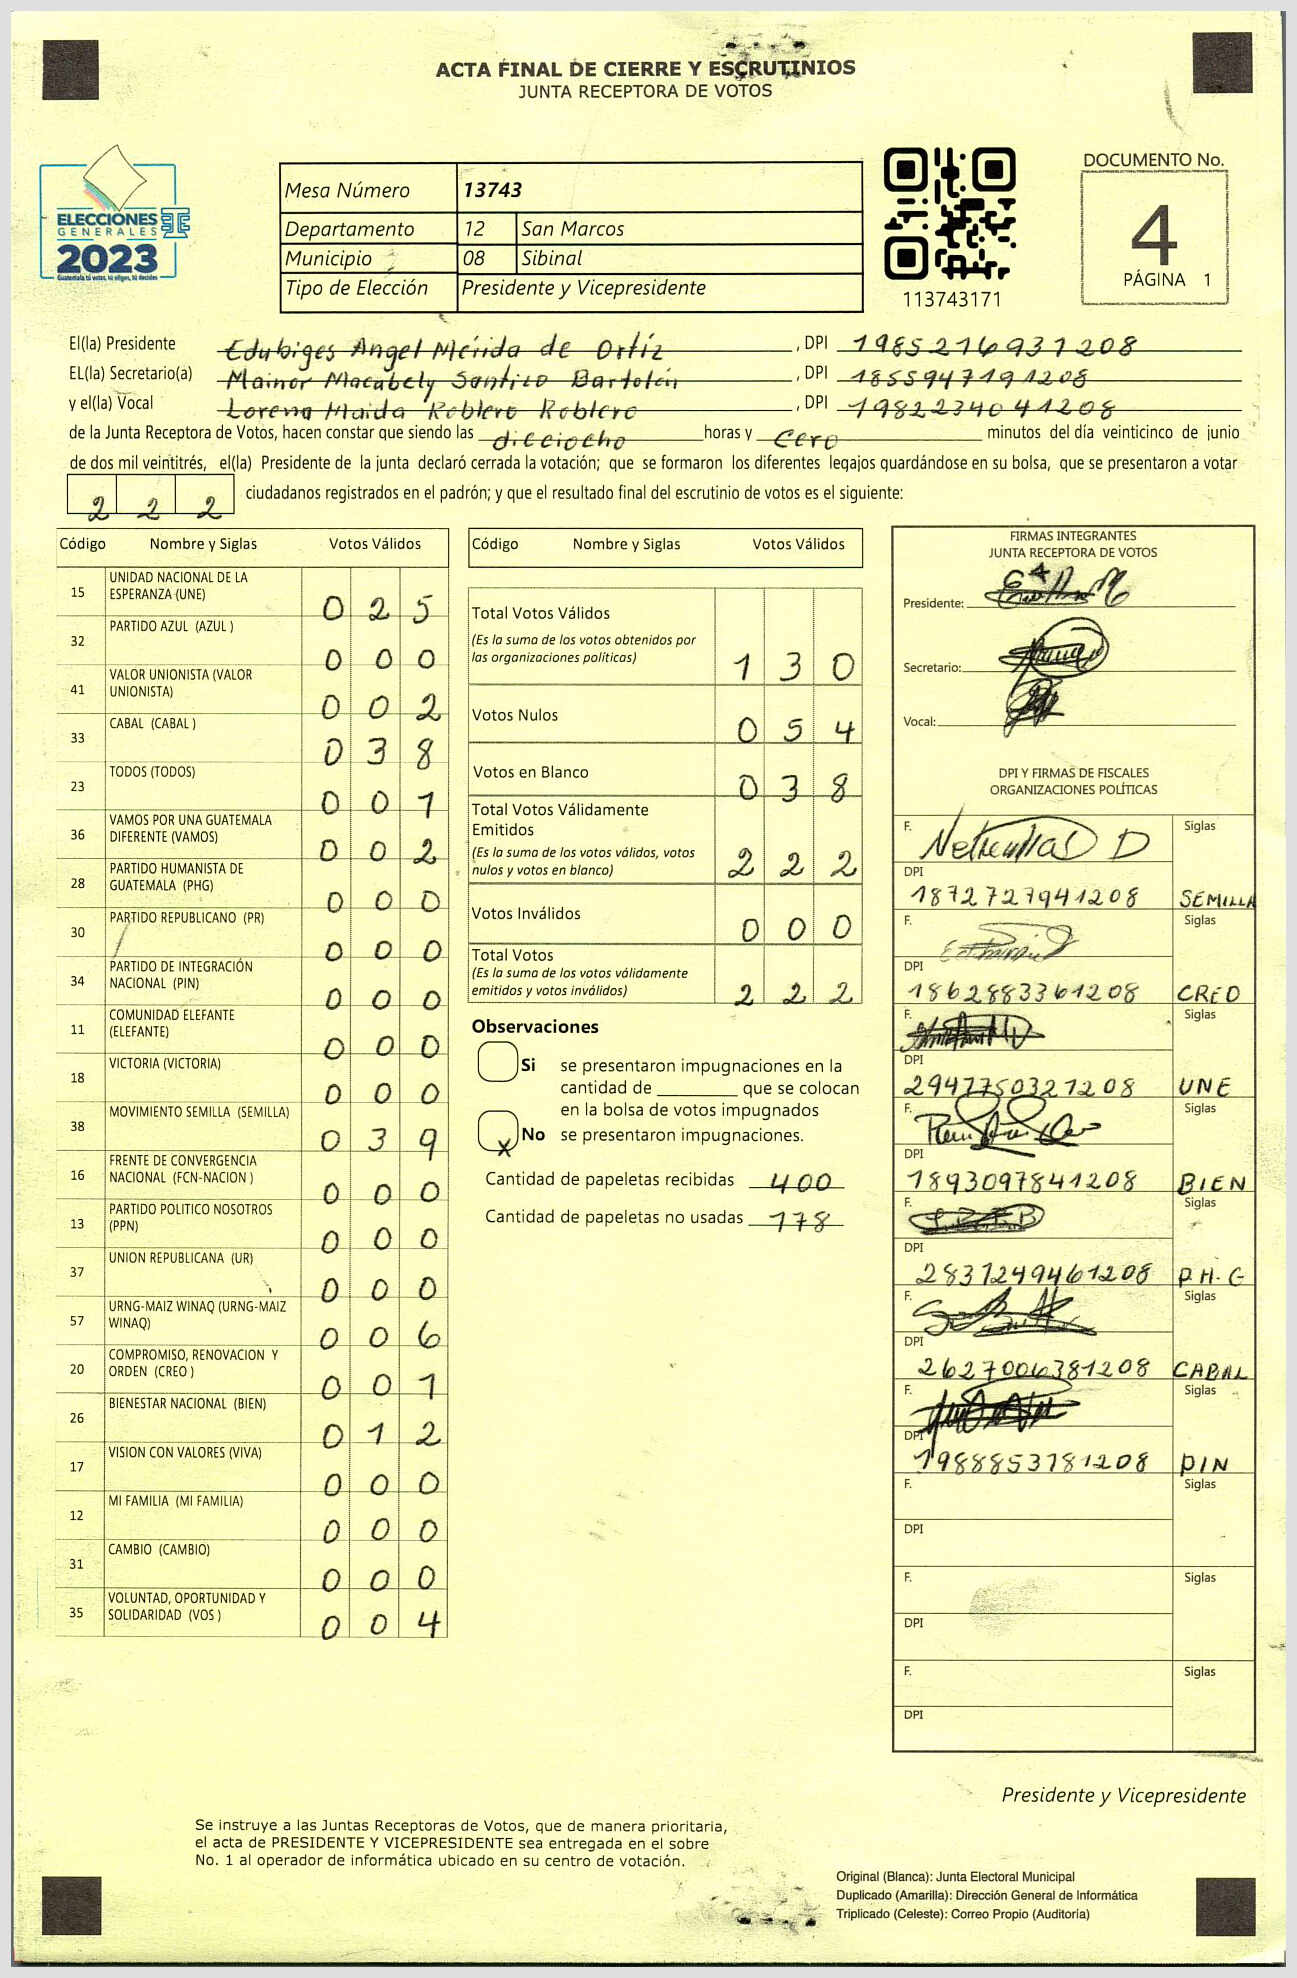 ACTA FINAL DE CIERRE Y ESCRUTINIOS
JUNTA RECEPTORA DE VOTOS
ELECCIONES
GENERALES
2023
Guatemala tú votas, tú eliges, tú decides
Mesa Número 13743
Departamento 12 San Marcos
Municipio 08 Sibinal
Tipo de Elección Presidente y Vicepresidente
113743171
DOCUMENTO No.
4
PÁGINA 1
El(la) Presidente Edubiges Angel Mérida de Ortíz , DPI 1985216931208
EL(la) Secretario(a) Mainor Macabely Santizo Bartolón , DPI 1855947191208
y el(la) Vocal Lorena Maida Roblero Roblero , DPI 1982234041208
de la Junta Receptora de Votos, hacen constar que siendo las dieciocho horas y cero minutos del día veinticinco de junio
de dos mil veintitrés, el(la) Presidente de la junta declaró cerrada la votación; que se formaron los diferentes legajos quardándose en su bolsa, que se presentaron a votar
2 2 2 ciudadanos registrados en el padrón; y que el resultado final del escrutinio de votos es el siguiente:
Código Nombre y Siglas Votos Válidos
15 UNIDAD NACIONAL DE LA ESPERANZA (UNE) 0 2 5
32 PARTIDO AZUL (AZUL ) 0 0 0
41 VALOR UNIONISTA (VALOR UNIONISTA) 0 0 2
33 CABAL (CABAL ) 0 3 8
23 TODOS (TODOS) 0 0 1
36 VAMOS POR UNA GUATEMALA DIFERENTE (VAMOS) 0 0 2
28 PARTIDO HUMANISTA DE GUATEMALA (PHG) 0 0 0
30 PARTIDO REPUBLICANO (PR) 0 0 0
34 PARTIDO DE INTEGRACIÓN NACIONAL (PIN) 0 0 0
11 COMUNIDAD ELEFANTE (ELEFANTE) 0 0 0
18 VICTORIA (VICTORIA) 0 0 0
38 MOVIMIENTO SEMILLA (SEMILLA) 0 3 9
16 FRENTE DE CONVERGENCIA NACIONAL (FCN-NACION ) 0 0 0
13 PARTIDO POLITICO NOSOTROS (PPN) 0 0 0
37 UNION REPUBLICANA (UR) 0 0 0
57 URNG-MAIZ WINAQ (URNG-MAIZ WINAQ) 0 0 6
20 COMPROMISO, RENOVACION Y ORDEN (CREO ) 0 0 1
26 BIENESTAR NACIONAL (BIEN) 0 1 2
17 VISION CON VALORES (VIVA) 0 0 0
12 MI FAMILIA (MI FAMILIA) 0 0 0
31 CAMBIO (CAMBIO) 0 0 0
35 VOLUNTAD, OPORTUNIDAD Y SOLIDARIDAD (VOS ) 0 0 4
Código Nombre y Siglas Votos Válidos
Total Votos Válidos
(Es la suma de los votos obtenidos por
las organizaciones políticas) 1 3 0
Votos Nulos 0 5 4
Votos en Blanco 0 3 8
Total Votos Válidamente
Emitidos
(Es la suma de los votos válidos, votos
nulos y votos en blanco) 2 2 2
Votos Inválidos 0 0 0
Total Votos
(Es la suma de los votos válidamente
emitidos y votos inválidos) 2 2 2
Observaciones
Si se presentaron impugnaciones en la
cantidad de ________ que se colocan
en la bolsa de votos impugnados
x No se presentaron impugnaciones.
Cantidad de papeletas recibidas 400
Cantidad de papeletas no usadas 178
FIRMAS INTEGRANTES
JUNTA RECEPTORA DE VOTOS
Presidente:
Secretario:
Vocal:
DPI Y FIRMAS DE FISCALES
ORGANIZACIONES POLÍTICAS
F. Siglas
DPI
1872727941208 SEMILLA
F. Siglas
DPI
1862883361208 CREO
F. Siglas
DPI
2947750321208 UNE
F. Siglas
DPI
1893097841208 BIEN
F. Siglas
DPI
2831249461208 P.H.G
F. Siglas
DPI
2627006381208 CABAL
F. Siglas
DPI
1988853781208 PIN
F. Siglas
DPI
F. Siglas
DPI
F. Siglas
DPI
Presidente y Vicepresidente
Se instruye a las Juntas Receptoras de Votos, que de manera prioritaria,
el acta de PRESIDENTE Y VICEPRESIDENTE sea entregada en el sobre
No. 1 al operador de informática ubicado en su centro de votación.
Original (Blanca): Junta Electoral Municipal
Duplicado (Amarilla): Dirección General de Informática
Triplicado (Celeste): Correo Propio (Auditoría)